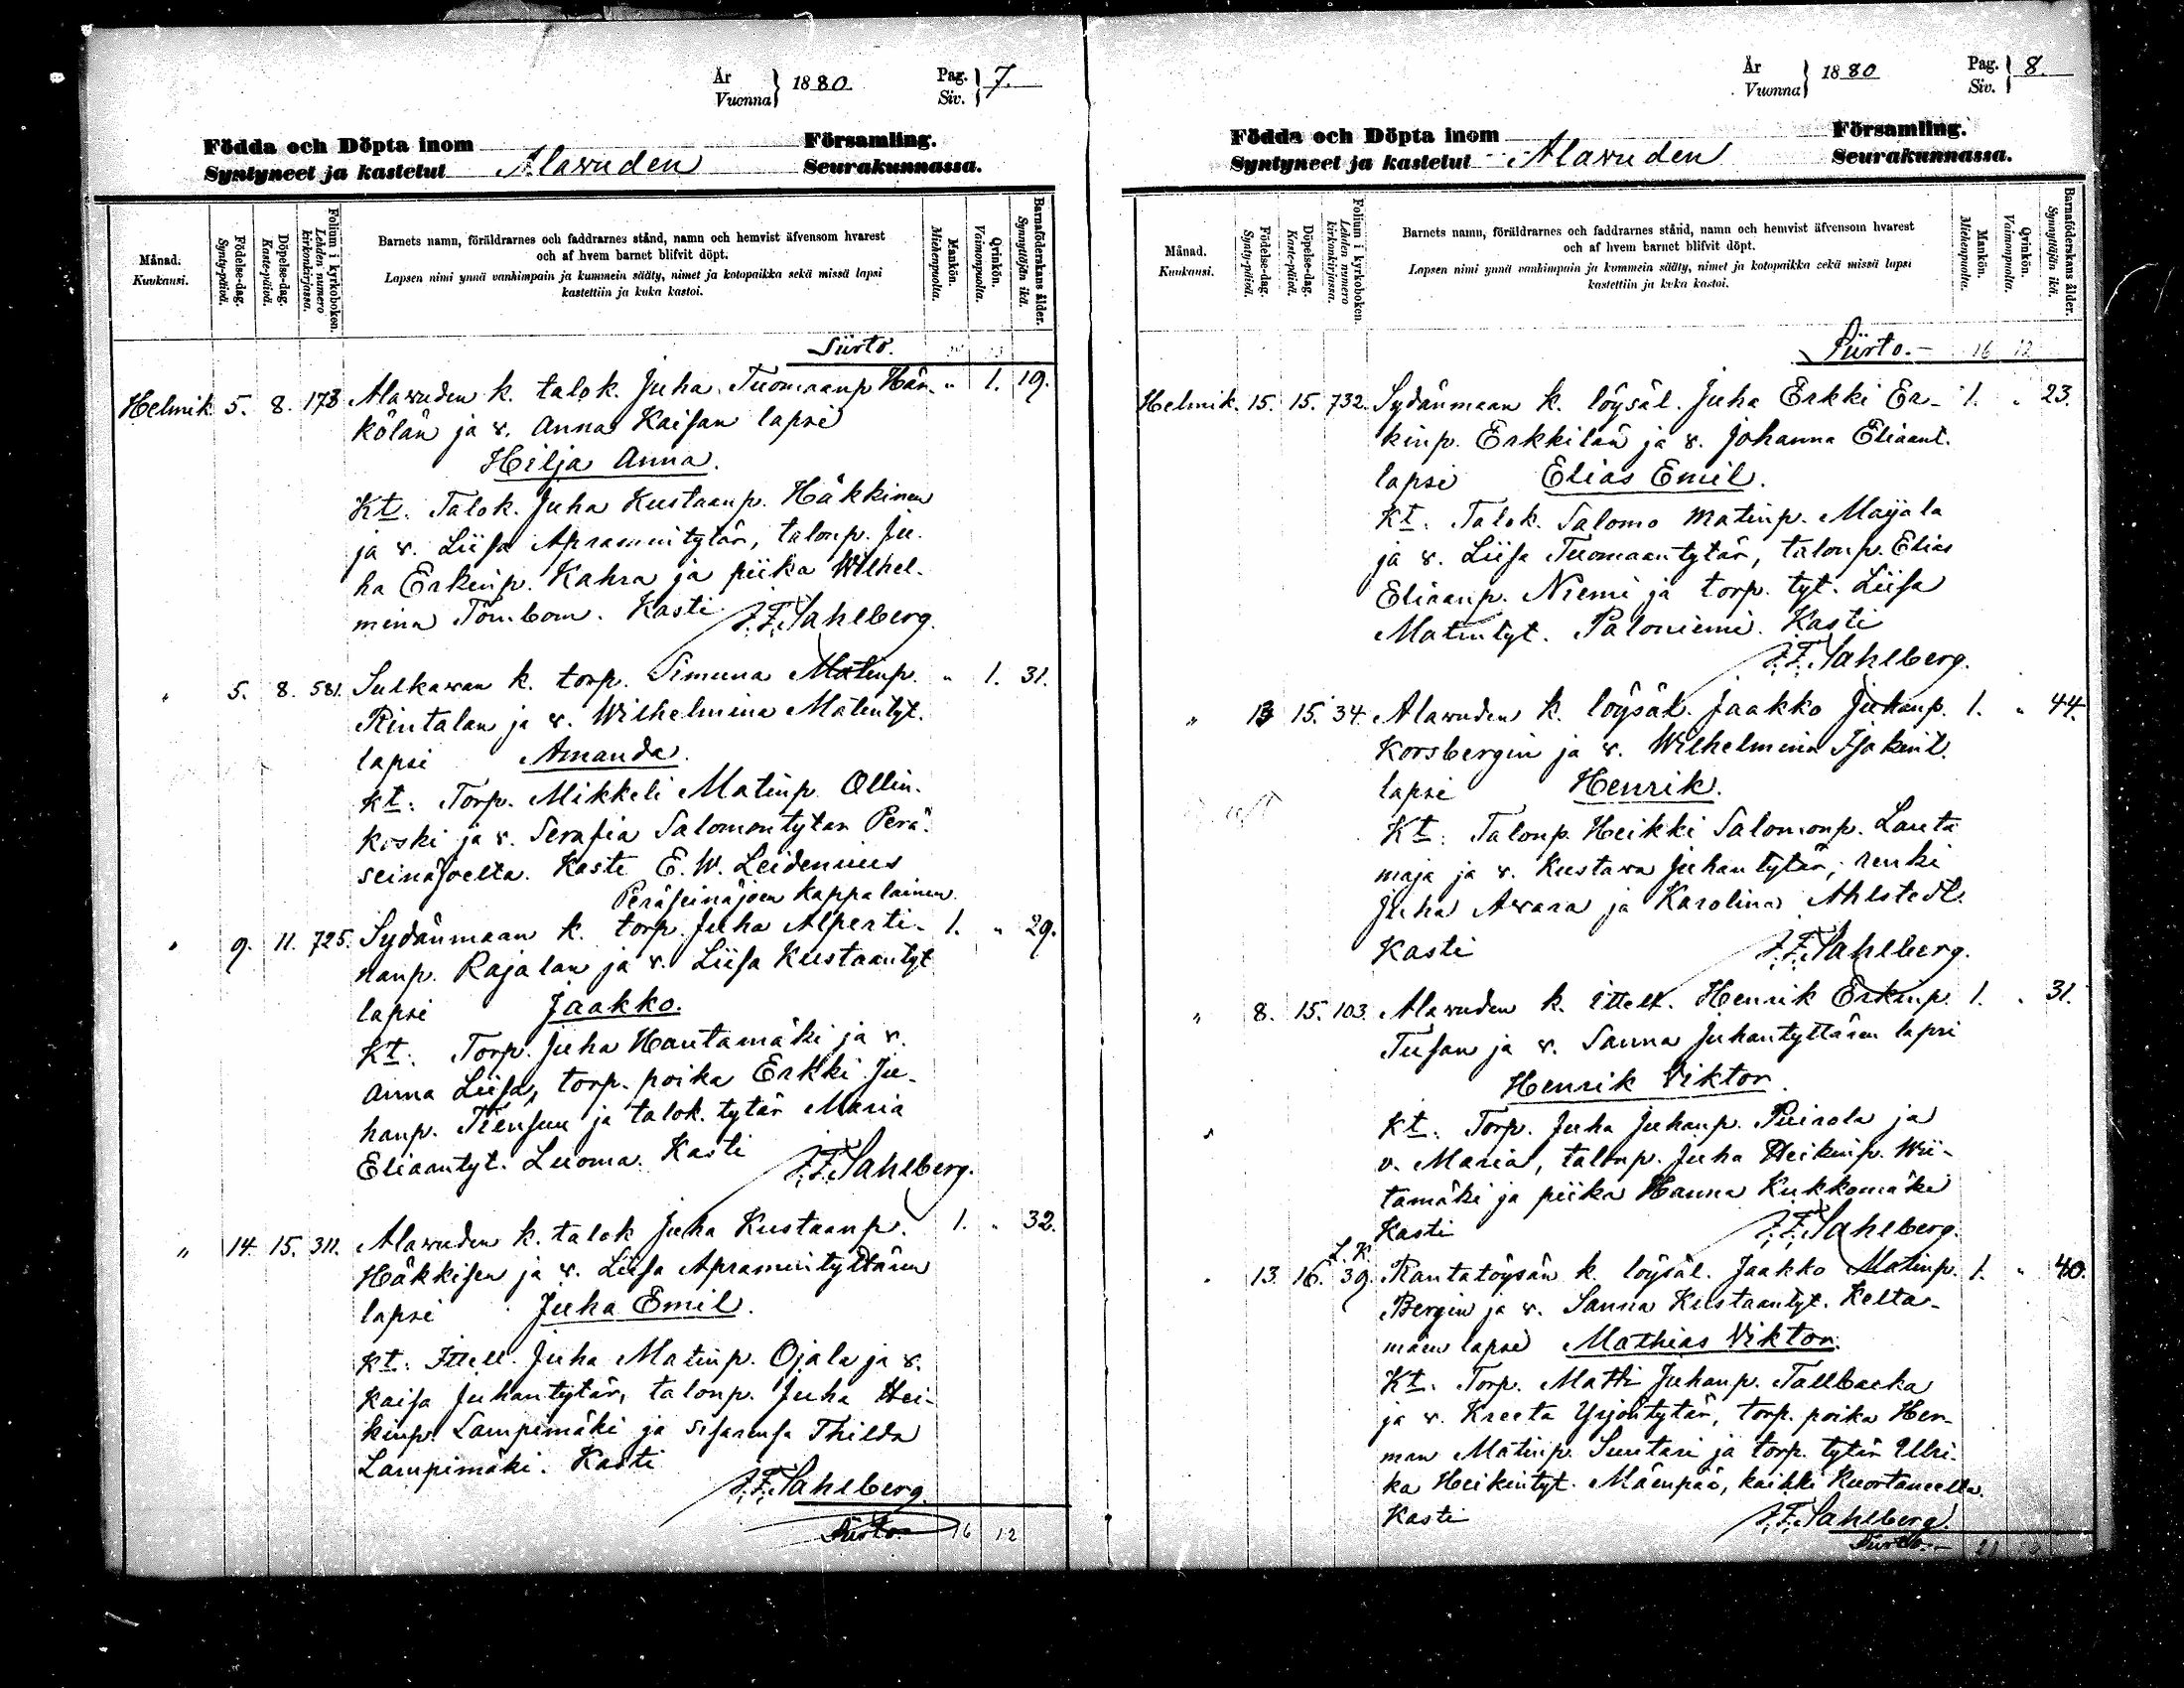 År
Vuonna
1880.
Pag.
Siv.
7.
Födda och Döpta inom
Församling.
Syntyneet ja kastetut
Alavuden
Seurakunnassa.
Månad.
Kuukausi.
Födelse-dag.
Synty-päivä.
Döpelse-dag.
Kaste-päivä.
Folium i kyrkoboken.
Lehden numero
kirkonkirjassa.
Barnets namn, föräldrarnes och faddrarnes stånd, namn och hemvist äfvensom hvarest
och af hvem barnet blifvit döpt.
Lapsen nimi ynnä vanhimpain ja kummein sääty, nimet ja kotopaikka sekä missä lapsi
kastettiin ja kuka kastoi.
Mankön.
Miehenpuolta.
Qvinkön.
Vaimonpuolta.
Barnaföderskans ålder.
Synnyttäjän ikä.
Siirto.
Helmik. 5. 8. 173 Alavuden k. talok. Juha Tuomaanp. Hän- " 1. 19.
kölän ja v. Anna Kaisan lapsi
Hilja Anna.
Kt. Talok. Juha Kustaanp. Häkkinen
ja v. Liisa Apramintytär, talonp. Ju-
ha Erkinp. Kahra ja piika Wilhel-
mina Törnbom. Kasti J.F. Sahlberg.
" 5. 8. 581. Sulkavan k. torp. Simuna Matinp. " 1. 31.
Rintalan ja v. Wilhelmina Matintyt.
lapsi Amanda.
Kt: Torp. Mikkeli Matinp. Ollin-
koski ja v. Serafia Salomontytär Perä-
seinäjoelta. Kaste E. W. Leidenius
Peräseinäjoen kappalainen.
" 9. 11. 725. Sydänmaan k. torp. Juha Alperti- 1. " 29.
nanp. Rajalan ja v. Liisa Kustaantyt
lapsi Jaakko.
Kt: Torp. Juha Hautamäki ja v.
Anna Liisa, torp. poika Erkki Ju-
hanp. Tiensuu ja talok. tytär Maria
Eliaantyt. Luoma. Kasti J.F. Sahlberg.
" 14. 15. 311. Alavuden k. talok Juha Kustaanp. 1. " 32.
Häkkisen ja v. Liisa Apramintyttären
lapsi Juha Emil.
Kt: Ittell. Juha Matinp. Ojala ja v.
Kaisa Juhantytär, talonp. Juha Hei-
kinp. Lampimäki ja sisarensa Thilda
Lampimäki. Kasti
J.F. Sahlberg.
Siirto. 16 12
År
Vuonna
1880
Pag.
Siv.
8.
Födda och Döpta inom
Församling.
Syntyneet ja kastetut
Alavuden
Seurakunnassa.
Månad.
Kuukausi.
Födelse-dag.
Synty-päivä.
Döpelse-dag.
Kaste-päivä.
Folium i kyrkoboken.
Lehden numero
kirkonkirjassa.
Barnets namn, föräldrarnes och faddrarnes stånd, namn och hemvist äfvensom hvarest
och af hvem barnet blifvit döpt.
Lapsen nimi ynnä vanhimpain ja kummein sääty, nimet ja kotopaikka sekä missä lapsi
kastettiin ja kuka kastoi.
Mankön.
Miehenpuolta.
Qvinkön.
Vaimonpuolta.
Barnaföderskans ålder.
Synnyttäjän ikä.
Siirto.- 16 12
Helmik. 15. 15. 732. Sydänmaan k. löysäl. Juha Erkki Er- 1. " 23.
kinp. Erkkilän ja v. Johanna Eliaant.
lapsi Elias Emil.
Kt. Talok. Salomo Matinp. Mayala
ja v. Liisa Tuomaantytär, talonp. Elias
Eliaanp. Niemi ja torp. tyt. Liisa
Matintyt. Paloniemi. Kasti
J.F. Sahlberg.
" 13 15. 34. Alavuden k. löysäl. Jaakko Juhanp. 1. " 44.
Korsbergin ja v. Wilhelmina Isakint.
lapsi Henrik.
Kt: Talonp. Heikki Salomonp. Lauta
maja ja v. Kustava Juhantytär, renki
Juha Avara ja Karolina Ahlstedt.
Kasti J.F. Sahlberg.
" 8. 15. 103. Alavuden k. ittell. Henrik Erkinp. 1. " 31.
Tusan ja v. Sanna Juhantyttären lapsi
Henrik Viktor.
Kt: Torp. Juha Juhanp. Puirola ja
v. Maria, talonp. Juha Heikinp. Wii-
tamäki ja piika Hanna Kukkomäki
Kasti J.F. Sahlberg.
L. K.
" 13. 16. 39. Rantatöysän k. löysäl. Jaakko Matinp. 1. " 40.
Bergin ja v. Sanna Kustaantyt. Kelta-
mäen lapsi Mathias Viktor.
Kt. Torp. Matti Juhanp. Tallbacka
ja v. Kreeta Yrjöntytär, torp. poika Her-
man Matinp. Suutari ja torp. tytär Ulri-
ka Heikintyt. Mäenpää, kaikki Kuortaneelta.
Kasti J.F. Sahlberg.
Siirto.- 21 12